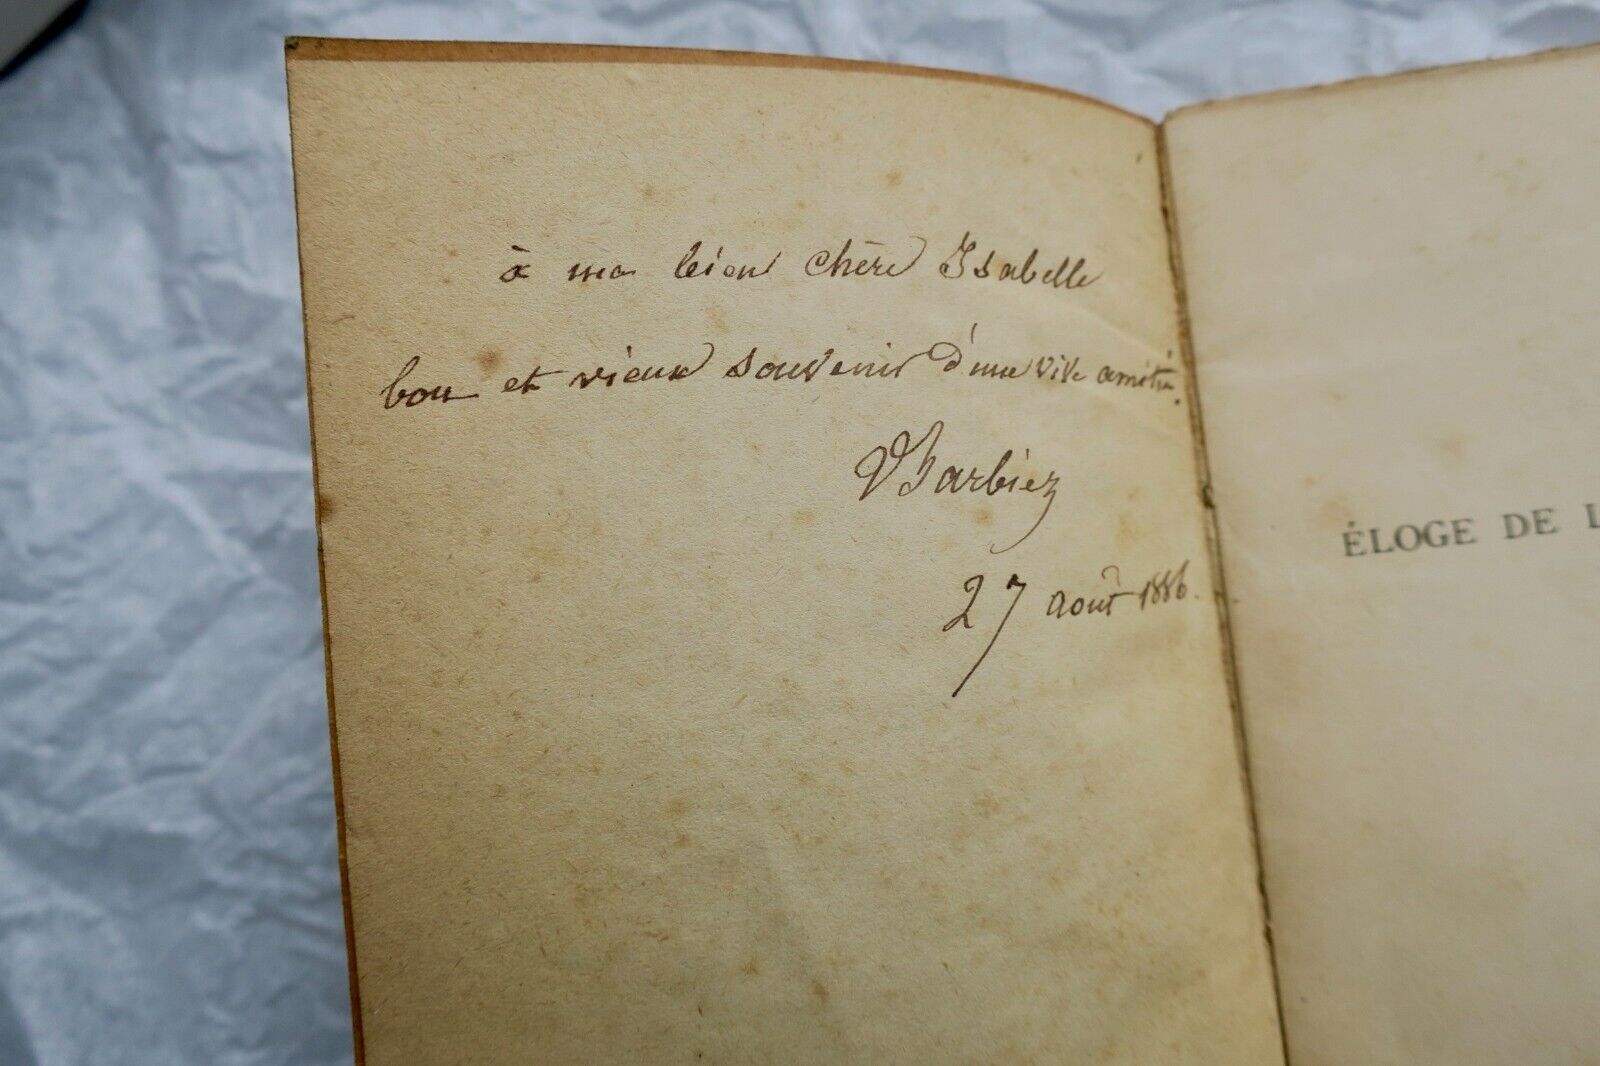 à ma bien chère Isabelle
bon et vieux souvenir d'une vive amitié.
VBarbiez
27 août 1886.
ÉLOGE DE L